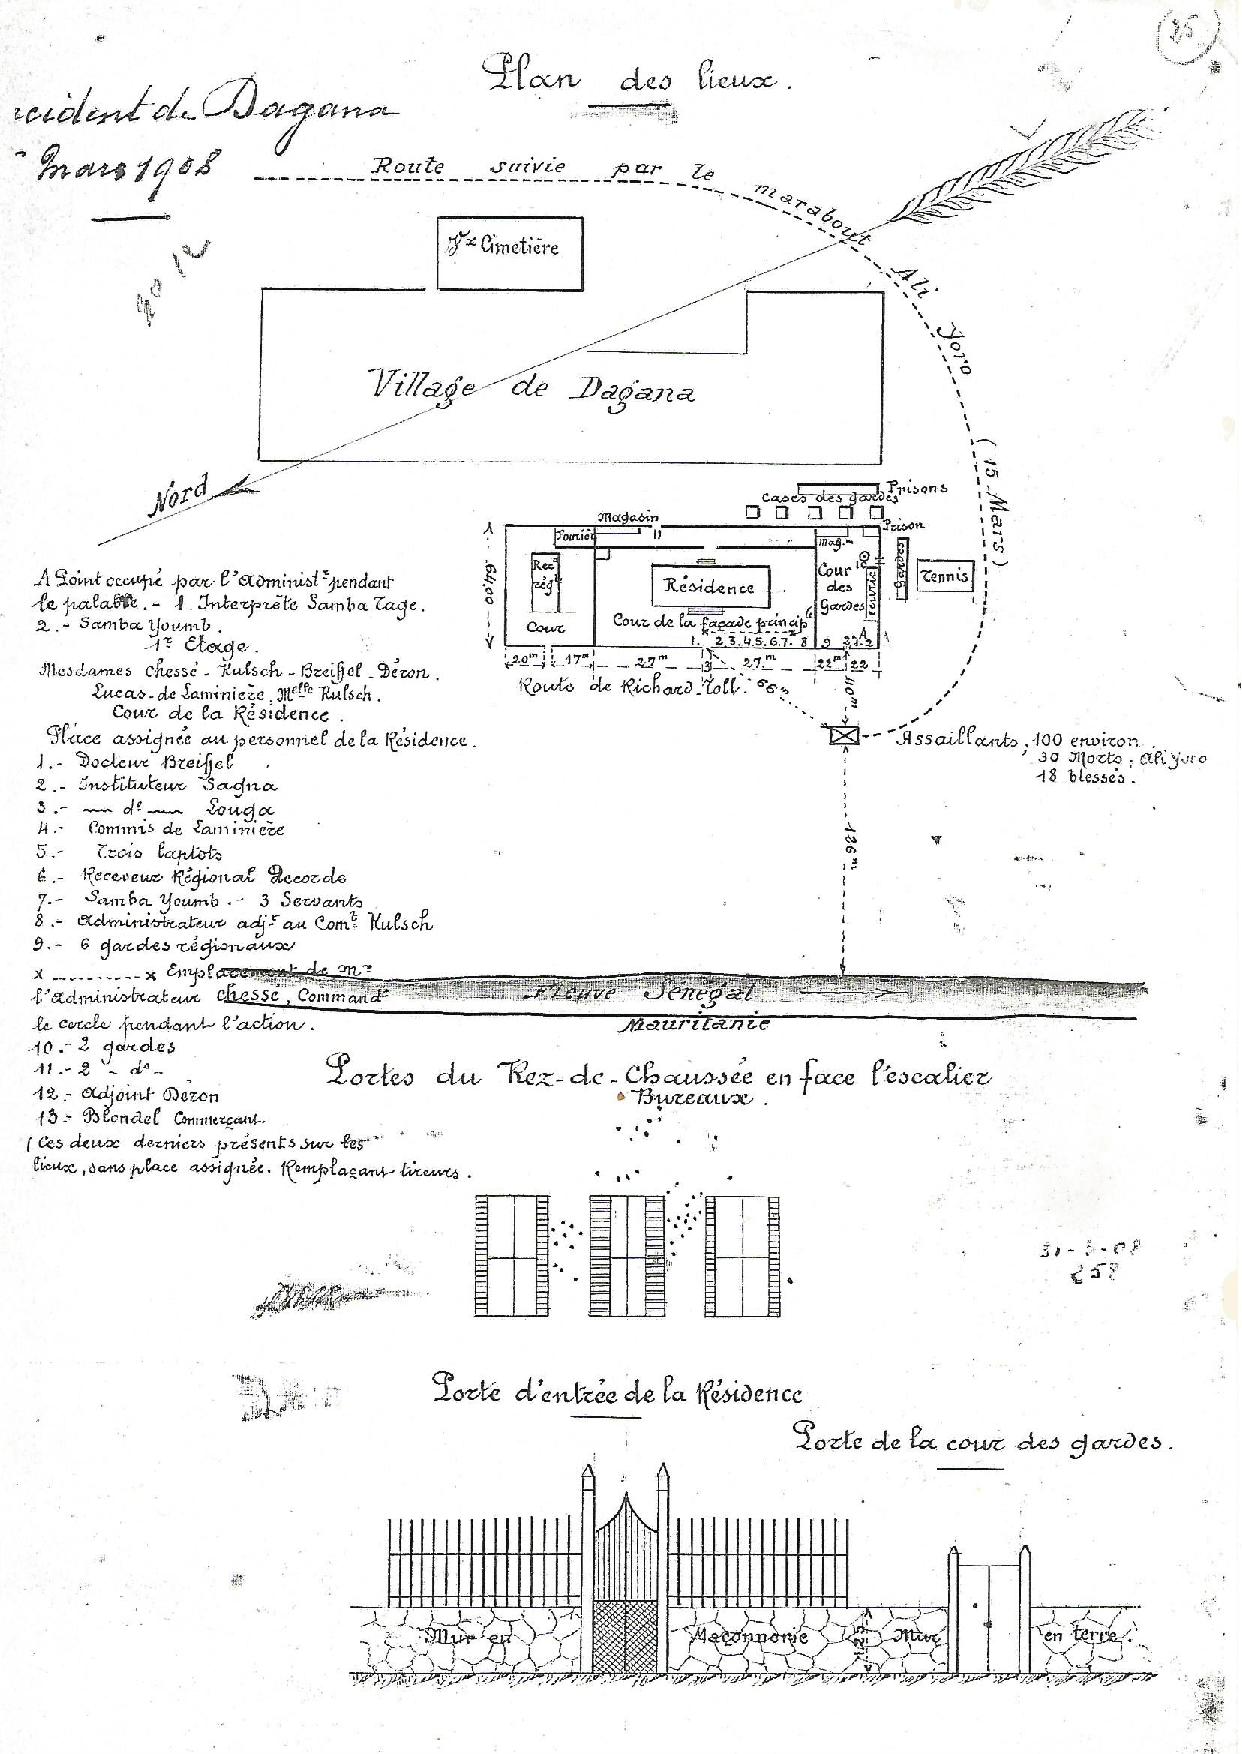 25
Plan des lieux.
ncident de Dagana
Mars 1908
Route suivie par le marabout Ali Yoro (15 Mars)
Cimetière
Village de Dagana
Nord
Prisons
Cases des gardes
Magasin
Prison
Mag.
Rec
rég
Résidence
Cour
des
Gardes
Gardes
Tennis
64,00
Cour
Cour de la façade princip
1. 2.3.4.5.6.7. 8 9
A
20m 17m 27m 13 27m 22m 22
Route de Richard-Toll.
40m
A Point occupé par l'Administr pendant
le palabre. - 1 Interprète Samba Tage.
2.- Samba Youmb.
1r Etage.
Mesdames Chessé - Hulsch - Breiffel - Déron.
Lucas-de Laminière, Melle Hulsch.
Cour de la Résidence.
Place assignée au personnel de la Résidence.
1.- Docteur Breiffel
2.- Instituteur Sagna
3.- d° Louga
4.- Commis de Laminière
5.- Trois laptots
6.- Receveur Régional Decorde
7.- Samba Youmb.- 3 Servants
8.- Administrateur adjt au Comt Hulsch
9.- 6 gardes régionaux
x ........... x Emplacement de Mr
l'administrateur Chessé, Commandt
le cercle pendant l'action.
10.- 2 gardes
11.- 2 d°-
12.- Adjoint Déron
13.- Blondel Commerçant.
(Ces deux derniers présents sur les
lieux, sans place assignée. Remplaçant tireurs.
Assaillants, 100 environ
30 Morts, Ali Yoro
18 blessés.
136m
Fleuve Sénégal
Mauritanie
Portes du Rez-de-Chaussée en face l'escalier
Bureaux.
31-3-08
258
Porte d'entrée de la Résidence
Porte de la cour des gardes.
Mur en Maçonnerie
Mur en terre.